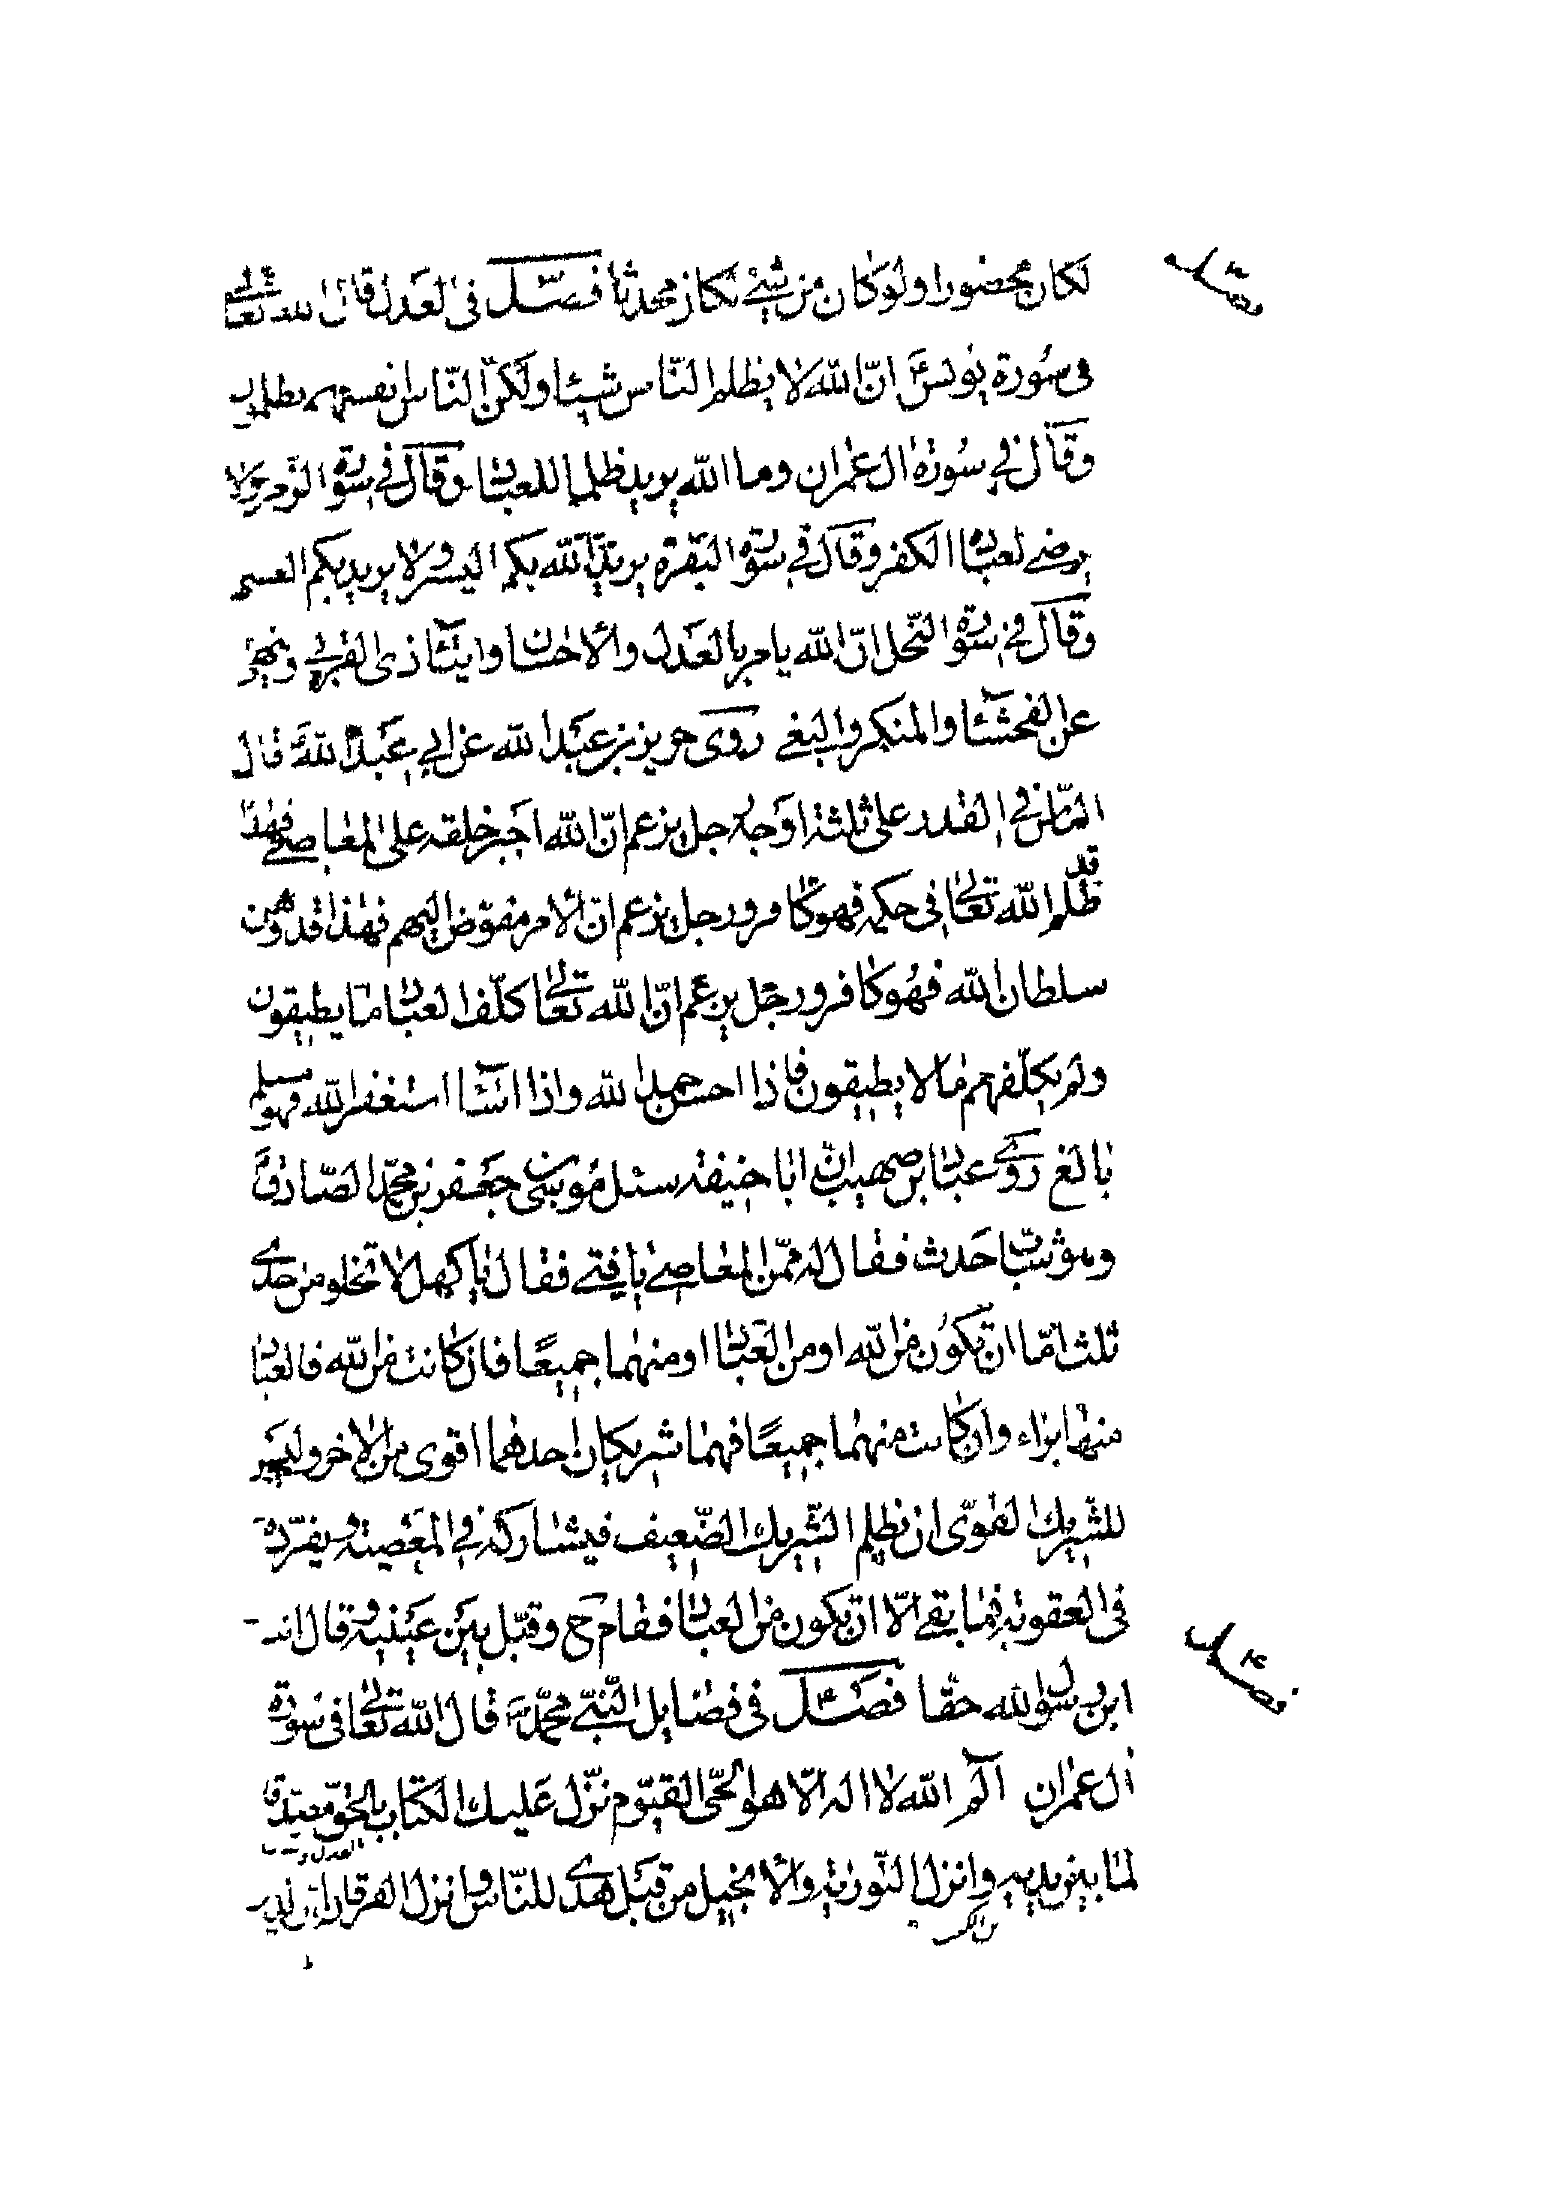 لكان محصورا ولو كان من شيء لكان محدثا فصل في العدل قال الله تعالى
فصل ٣
في سورة يونس ان الله لا يظلم الناس شيئا ولكن الناس انفسهم يظلمون
وقال في سورة ال عمران وما الله يريد ظلما للعباد وقال في سورة الزمر ولا
يرضى لعباده الكفر وقال في سورة البقرة يريد الله بكم اليسر ولا يريد بكم العسر
وقال في سورة النحل ان الله يامر بالعدل والاحسان وايتاء ذى القربى وينهى
عن الفحشاء والمنكر والبغي روى حريز بن عبد الله عن ابي عبد الله قال
الناس في القدر على ثلثة اوجه رجل يزعم ان الله اجبر خلقه على المعاصي فهذا
قد ظلم الله تعالى في حكمه فهو كافر ورجل يزعم ان الامر مفوض اليهم فهذا قد وهن
سلطان الله فهو كافر ورجل يزعم ان الله تعالى كلف العباد ما يطيقون
ولم يكلفهم ما لا يطيقون فاذا احسن حمد الله واذا اساء استغفر الله فهو مسلم
بالغ روى عباد بن صهيب ان ابا حنيفة سئل موسى بن جعفر بن محمد الصادق
وموسى حدث فقال له ممن المعاصي يا فتى فقال يا كهل لا تخلو من احدى
ثلث اما ان تكون من الله او من العباد او منهما جميعًا فان كانت من الله فالعباد
منها براء وان كانت منهما جميعًا فهما شريكان احدهما اقوى من الاخر وليس
للشريك القوى ان يظلم الشريك الضعيف فيشاركه في المعصية ويفرده
في العقوبة فما بقي الا ان تكون من العباد فقام ح وقبل بين عينيه وقال انت
ابن رسول الله حقا فصل في فضايل النبي محمد قال الله تعالى في سورة
فصل ٤
ال عمران الم الله لا اله الا هو الحى القيوم نزل عليك الكتاب بالحق مصدقا
لما بين يديه وانزل التورية والانجيل من قبل هدى للناس وانزل الفرقان ان الذين